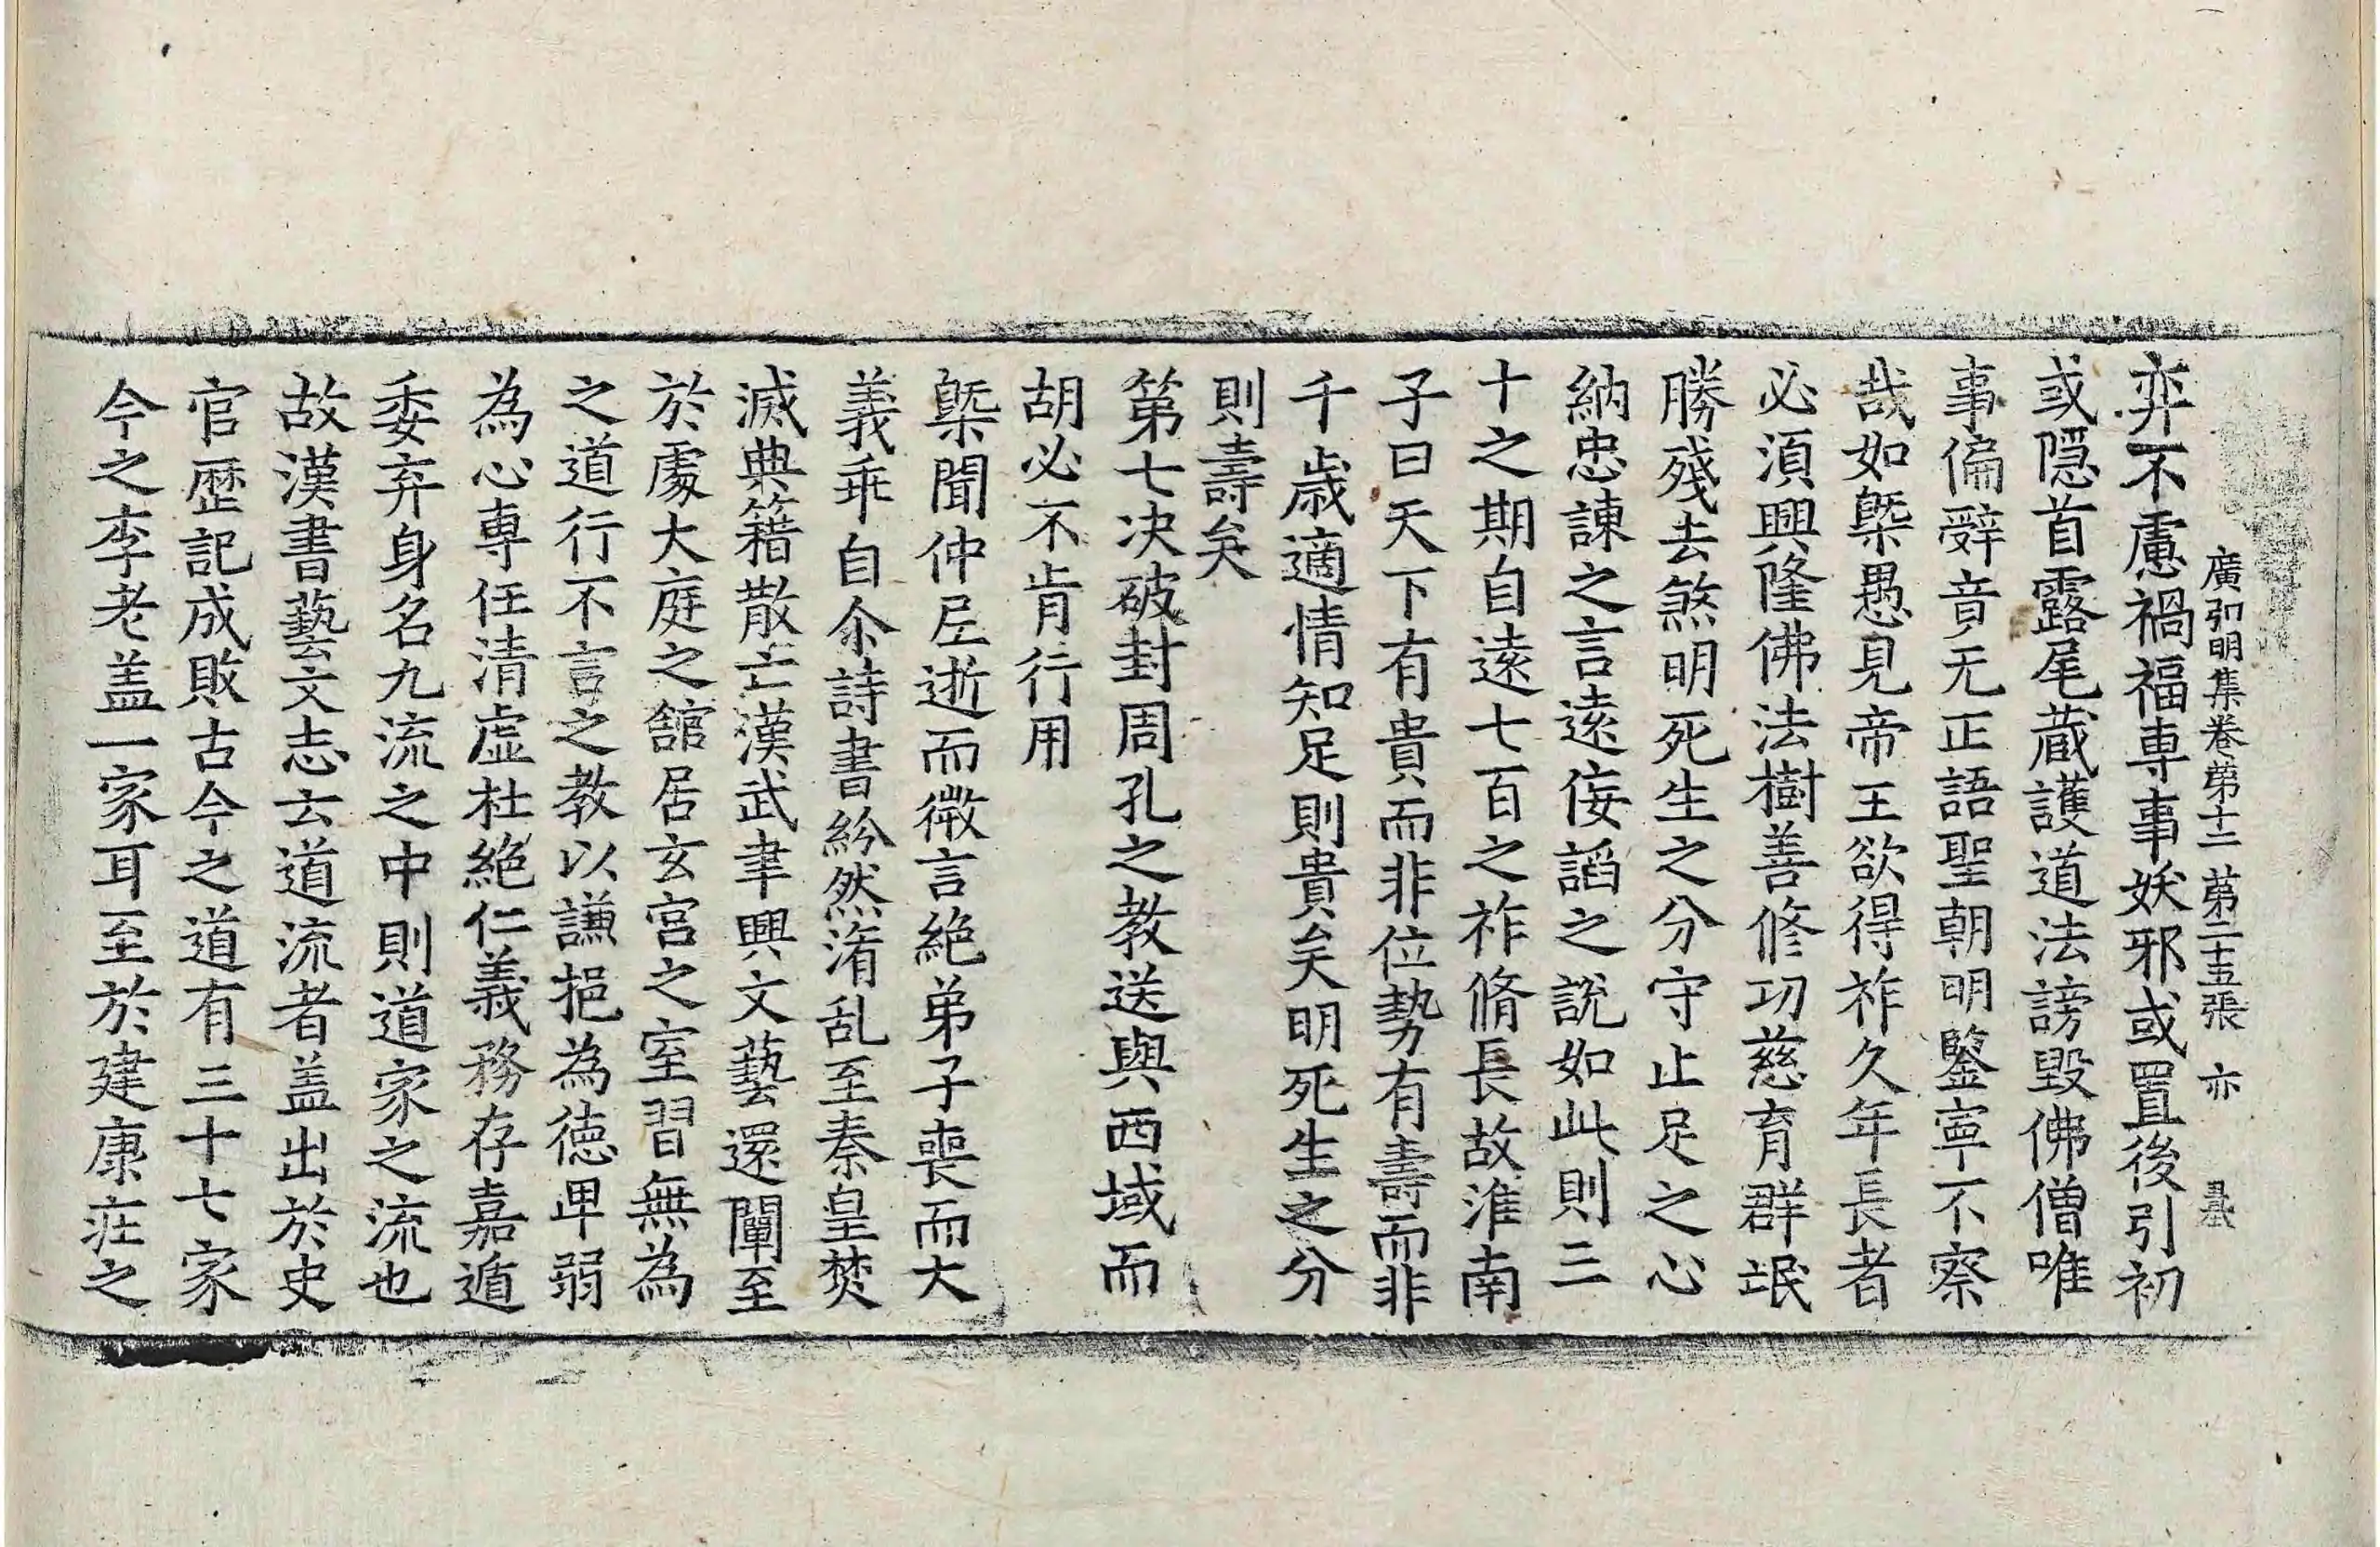 廣弘明集卷第十二 第二十五張 亦
弃不慮禍福専事妖邪或置後引初
或隱首露尾蔵護道法謗毀佛僧唯
事偏辭音无正語聖朝明鑒寧不察
哉如槩愚見帝王欲得祚久年長者
必須興隆佛法樹善修功慈育群氓
勝殘去煞明死生之分守止足之心
納忠諫之言遠侫謟之說如此則三
十之期自遠七百之祚脩長故淮南
子曰天下有貴而非位勢有壽而非
千歳適情知足則貴矣明死生之分
則壽矣
第七决破封周孔之教送與西域而
胡必不肯行用
槩聞仲𡰱逝而微言絶弟子喪而大
義乖自尒詩書紛然淆乱至秦皇焚
滅典籍散亡漢武聿興文藝還闡至
於處大庭之舘居玄宫之室習無為
之道行不言之教以謙挹為徳卑弱
為心専任清虚杜絶仁義務存嘉遁
委弃身名九流之中則道家之流也
故漢書藝文志云道流者盖出於史
官歴記成敗古今之道有三十七家
今之李老盖一家耳至於建康庄之